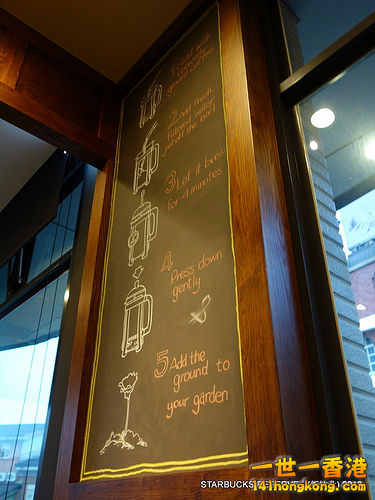 1 Start with
2 Add fresh
filtered water
just off the boil
3 Let it brew
for 4 minutes
4 Press down
gently
&
5 Add the
ground to
your garden
STARBUCKS
一世一香港
141hongkong.com